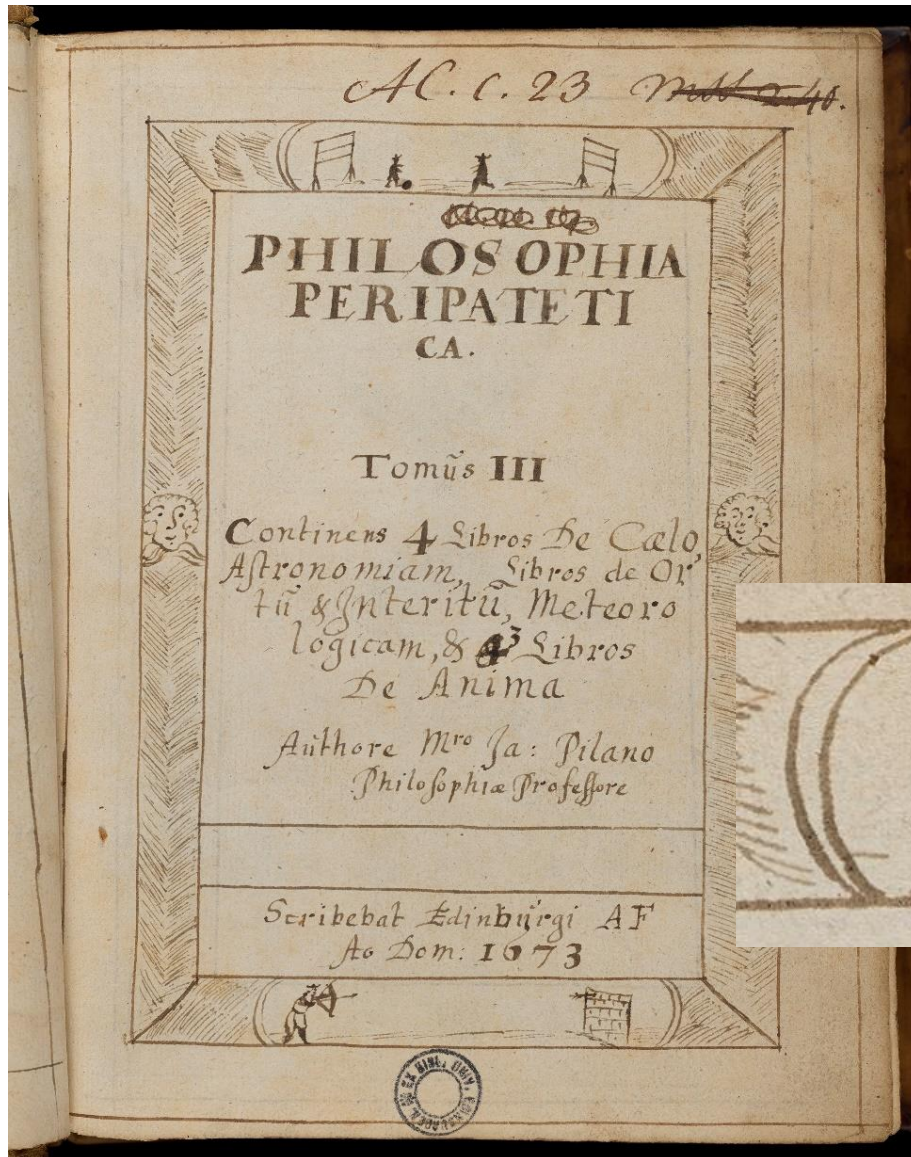 AC. c. 23
PHILOSOPHIA
PERIPATETI
CA.
Tomŭs III
Continens 4 Libros De Cælo,
Aſtronomiam, Libros de Or
tŭ & Interitŭ, Meteoro
logicam, & 3 Libros
De Anima
Aŭthore Mro Ja: Pilano
Philoſophiæ Profeſſore
Scribebat Edinbŭrgi AF
Ao Dom: 1673